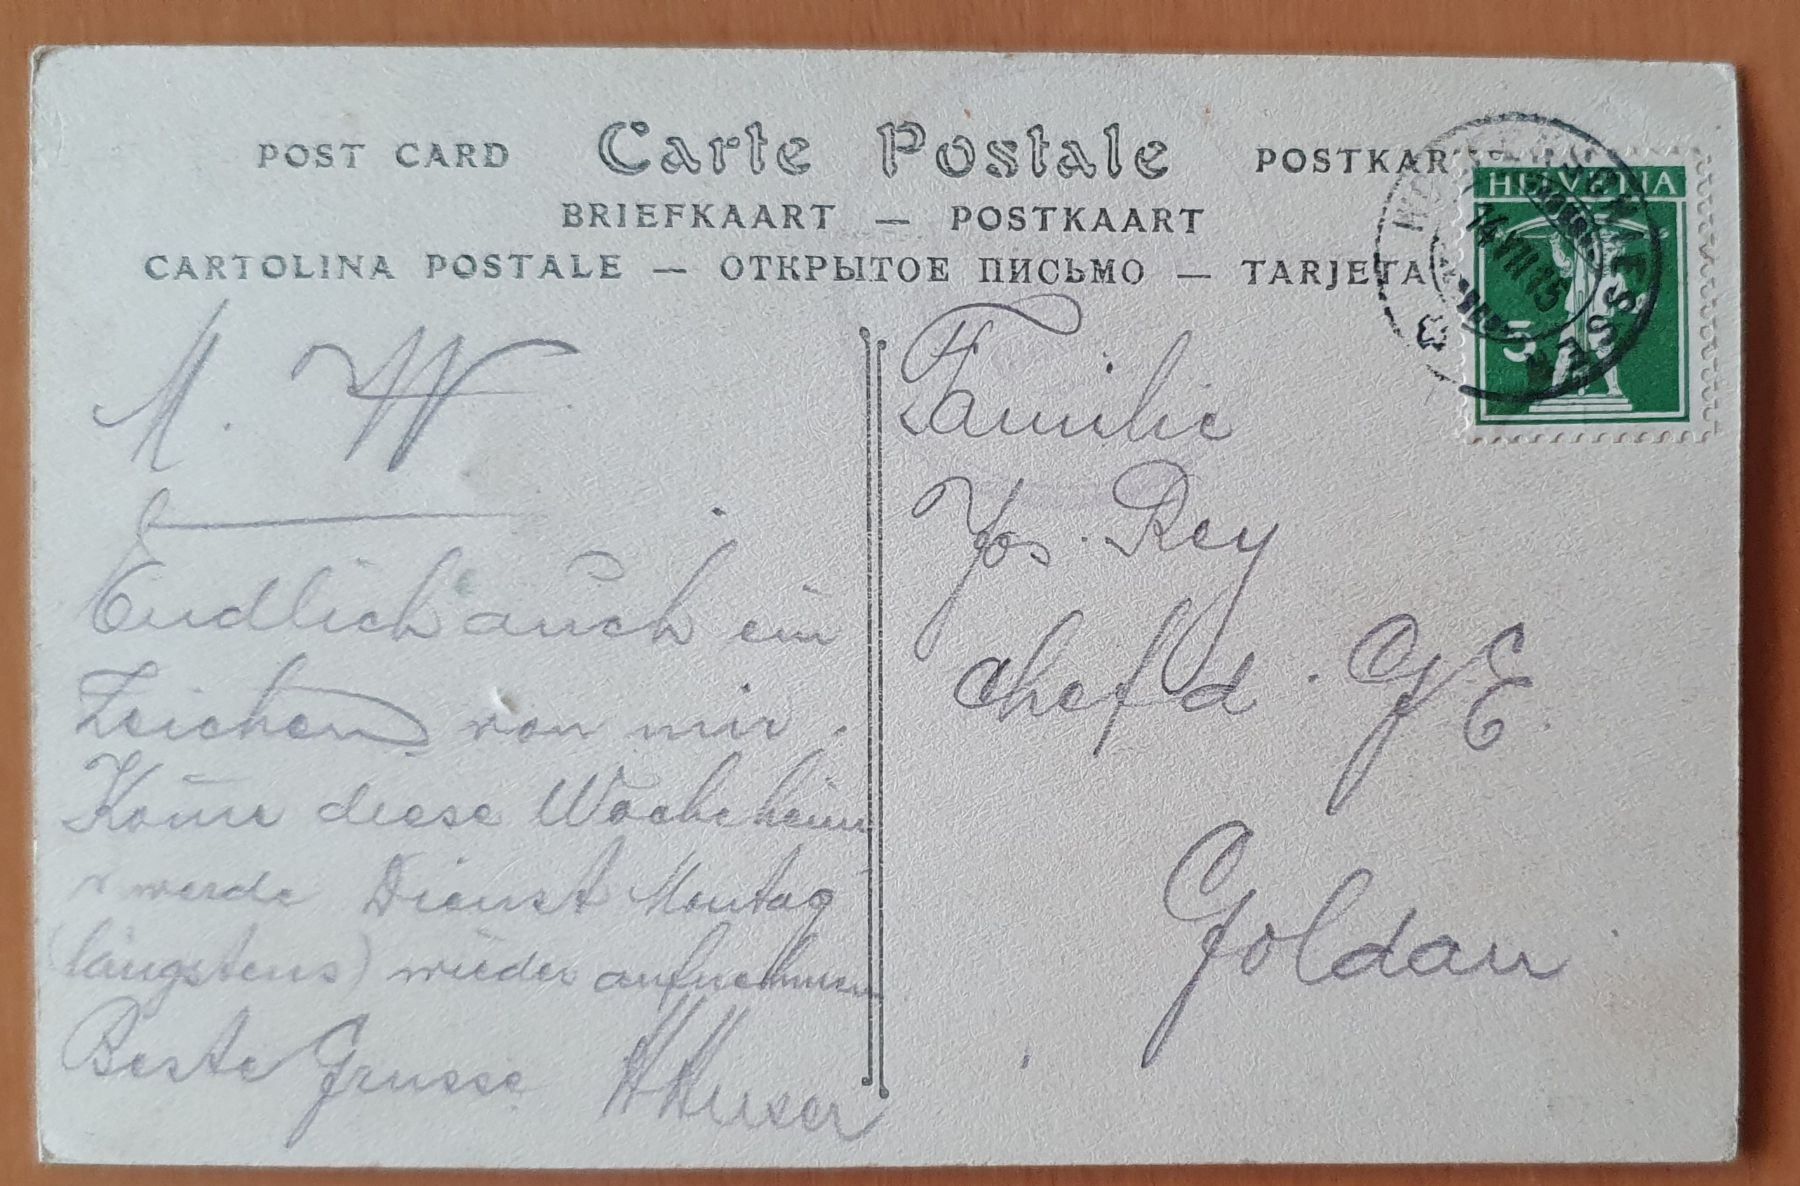 POST CARD Carte Postale POSTKAR
BRIEFKAART — POSTKAART
CARTOLINA POSTALE — ОТКРЫТОЕ ПИСЬМО — TARJETA
HELVETIA
5
14 VIII 15
M. W.
Endlich auch ein
Zeichen von mir.
Kom̄e diese Woche heim
u werde Dienst Montag
(längstens) wieder aufnehmen
Beste Grusse
Familie
Jos. Rey
Chef d. GE.
Goldau